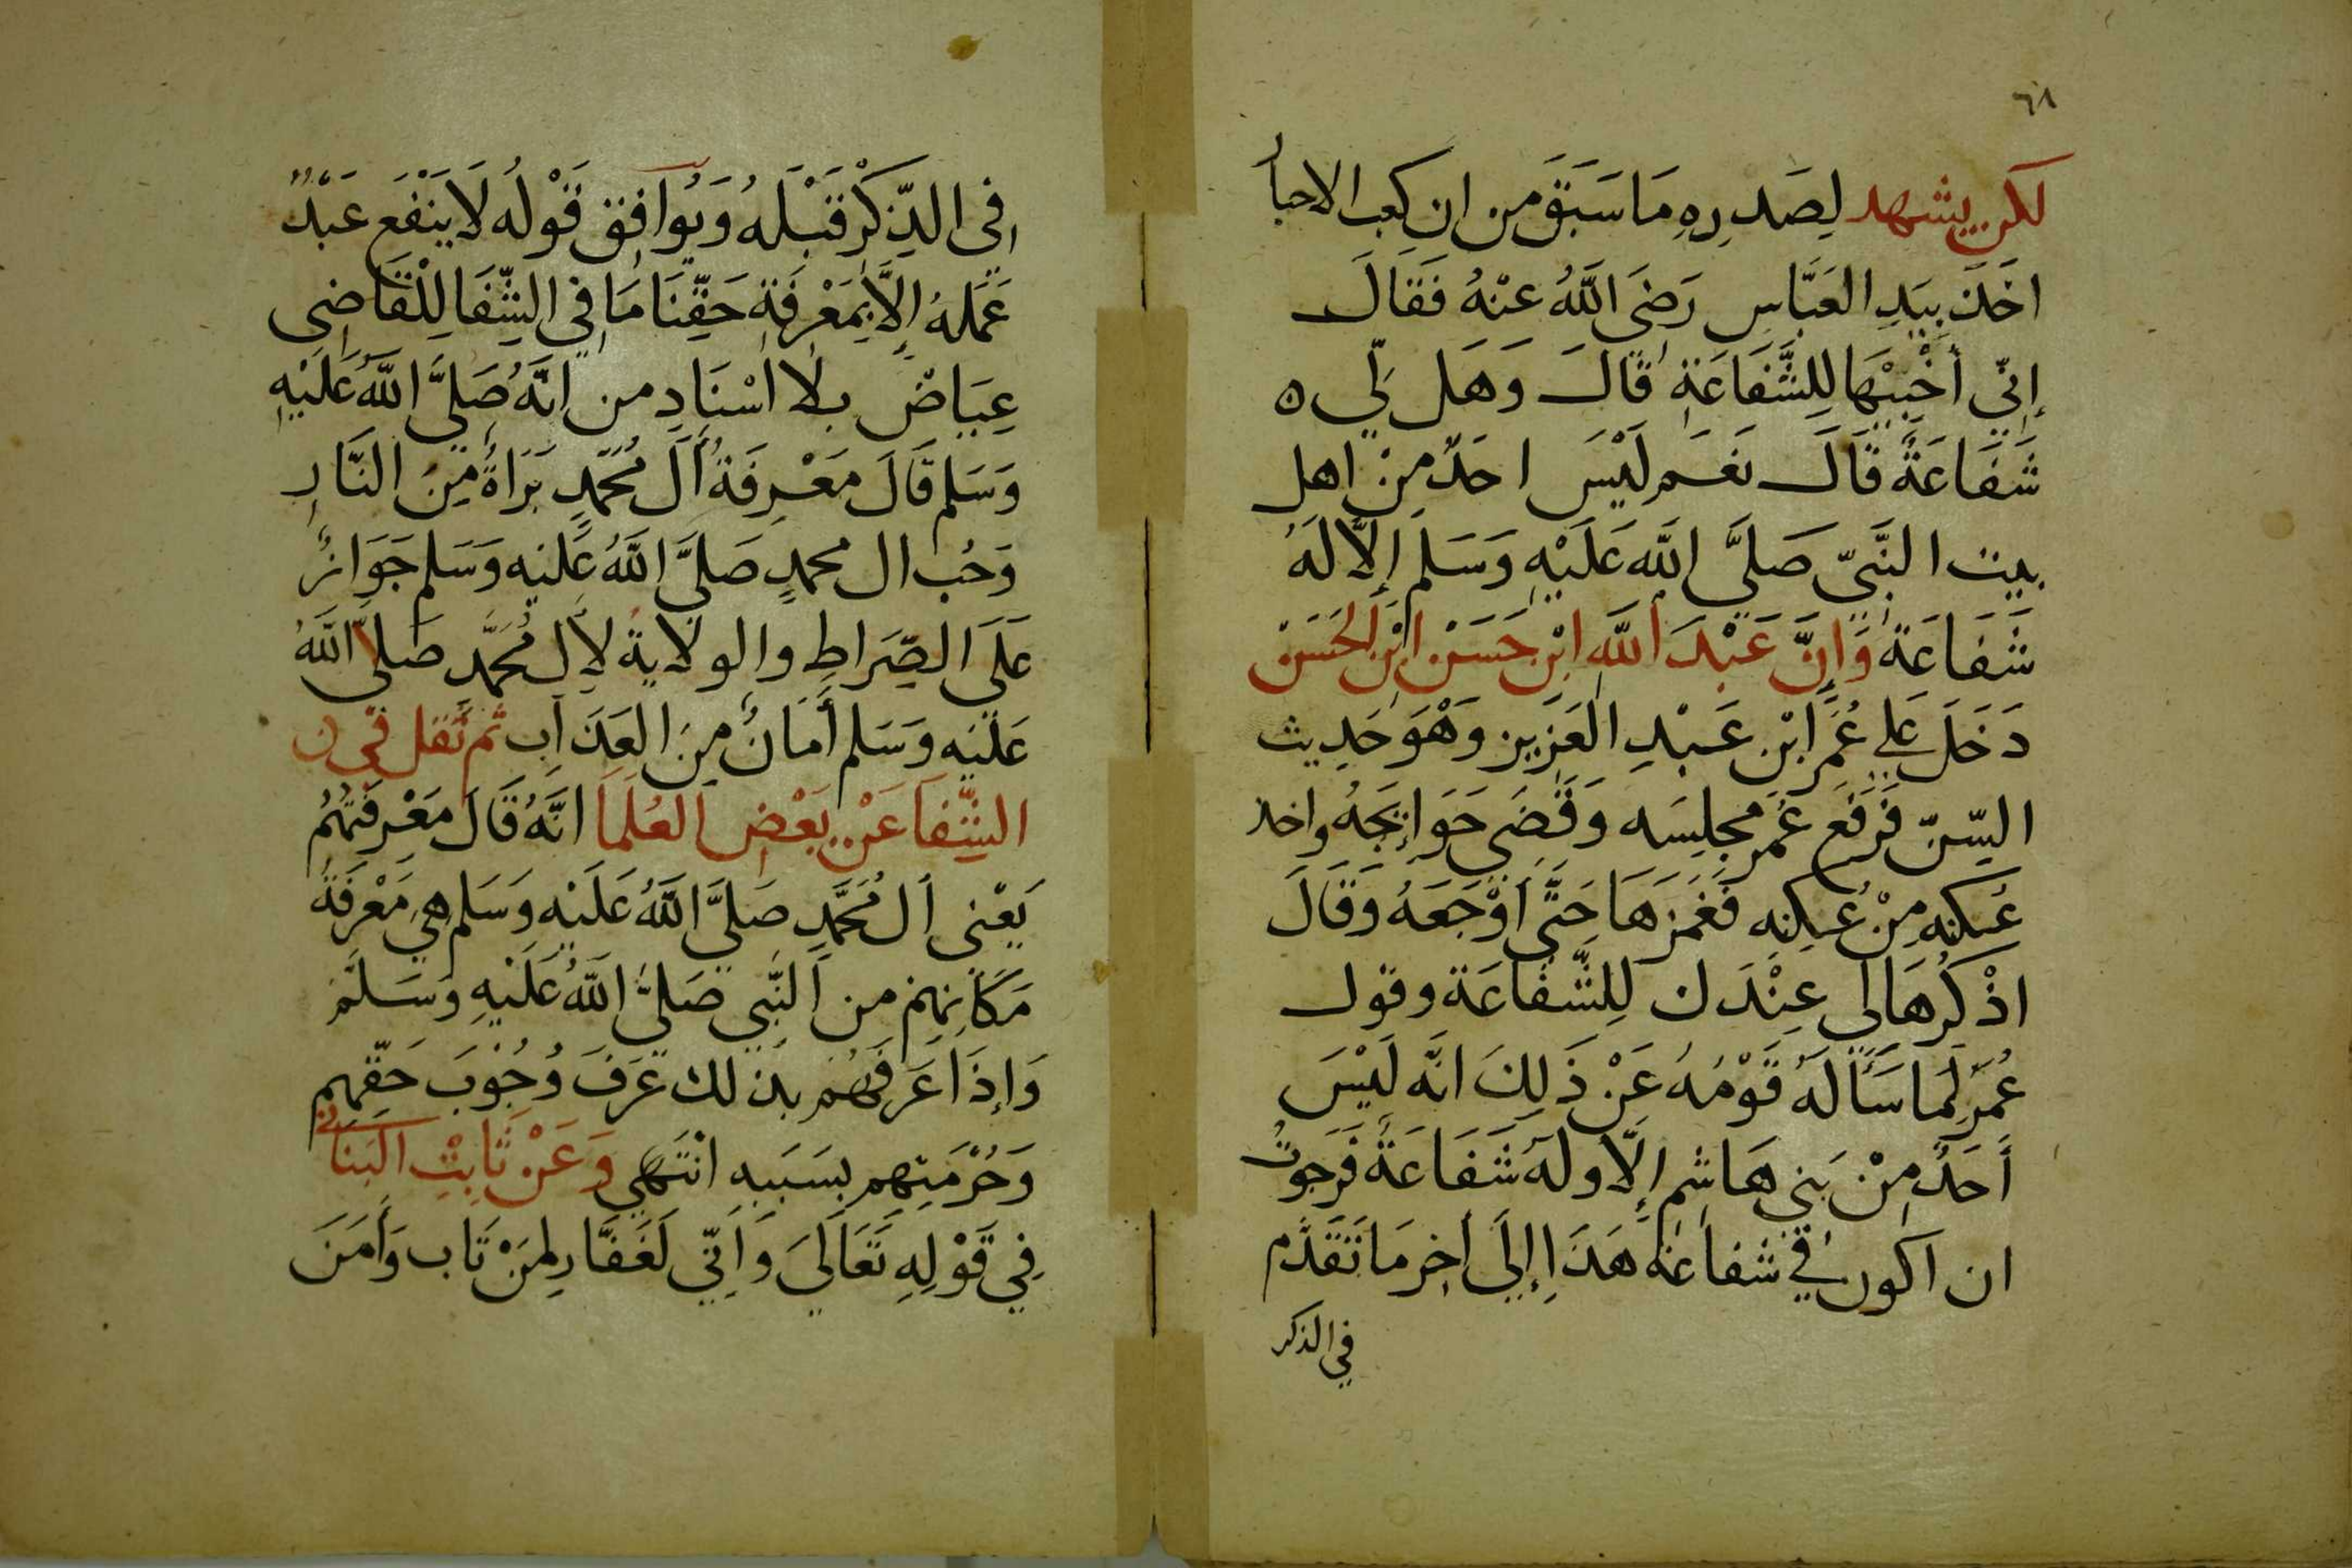 ٦٨
لكن يشهد لِصَدرِهِ مَا سَبَقَ من ان كعب الاحبار
اخَذَ بِيَدِ العَبَّاسِ رَضَىَ اللَّهُ عنْهُ فَقَالَ
إنّى أخْتَبِيْهَا لِلشَّفَاعَةِ قَالَ وَهَل لِّي ه
شَفَاعَةً قَالَ نعَم لَيْسَ احَدٌ مِنْ اهل
بيت النَّبىّ صَلىَّ اللَّه عَلَيْهِ وَسَلم إلاَّ لَهُ
شَفَاعَة وَاِنَّ عَبْدَ اللَّهِ ابْنِ حَسَنْ ابْنِ الحَسَنْ
دَخَلَ عَلى عُمَرَ ابْنِ عَبْدِ العَزِيزِ وَهْوَ حَدِيث
السِّنّ فَرَفَعَ عُمَر مجلِسَه وَقَضَى حَوَائِجَهُ واخذ
عُكنه مِنْ عُكنِه فَغَمَزهَا حَتَّى أوْجَعَهُ وَقَالَ
اذْكُرهَا لى عِنْدَك لِلشَّفَاعَة وقول
عُمَر لِمَا سَأَلَهُ قَوْمُهُ عَنْ ذَلِكَ انَّه لَيْسَ
أحَدٌ مِنْ بَنِي هَاشِمٍ إلَّا ولهُ شَفَاعَةً فَرَجوتُ
ان اكون في شفاعَة هَذَا إلىَ أخِر مَا تَقَدَّم
في الذكر
فِى الذِّكْرِ قَبْلَهُ وَيُوَافِق قَوْلُه لَا يَنْفَع عَبْدٌ
عَمَلهُ إلاَّ بِمَعْرِفَةِ حَقِّنَا مَا فِى الشِّفَا لِلْقَاضِى
عِيَاضْ بلا اسْنَادٍ من انَّهُ صَلىَّ اللَّهُ عَلَيْهِ
وَسَلم قَالَ مَعْرِفَةُ أَل مُحَمَّدٍ بَرَاةٌ مِنَ النَّارِ
وَحُب ال محمدٍ صَلىَّ اللَّهُ عَليْه وَسَلم جَوَازٌ
عَلَى الصِّرَاطِ والولايةُ لأل مُحَمَّد صَلىَّ اللَّهُ
عَلَيْه وَسَلم أَمَانٌ مِنَ العَذَاب ثم نَقَل فى ن
الشِّفَا عَنْ بَعْضِ العُلَمَا انَّهُ قَالَ مَعْرِفَتُهُمُ
يَعْنى أل مُحَمَّدٍ صَلىَّ اللَّهُ عَلَيْه وَسَلم هِي مَعْرِفَةُ
مَكَانِهِمْ من النَّبِي صَلىَّ اللَّهُ عَلَيْهِ وَسَلَّمْ
وَإذَا عَرَفَهُمْ بذلك عَرَفَ وُجُوبَ حَقِّهِم
وَحُرْمَتِهِم بِسَبَبِهِ انْتَهَى وَعَنْ ثَابِتْ البَنَانى
فِي قَوْلِهِ تَعَالَىَ وَاِنّى لَغَفَّار لِمَنْ تَاب وَأمَنَ